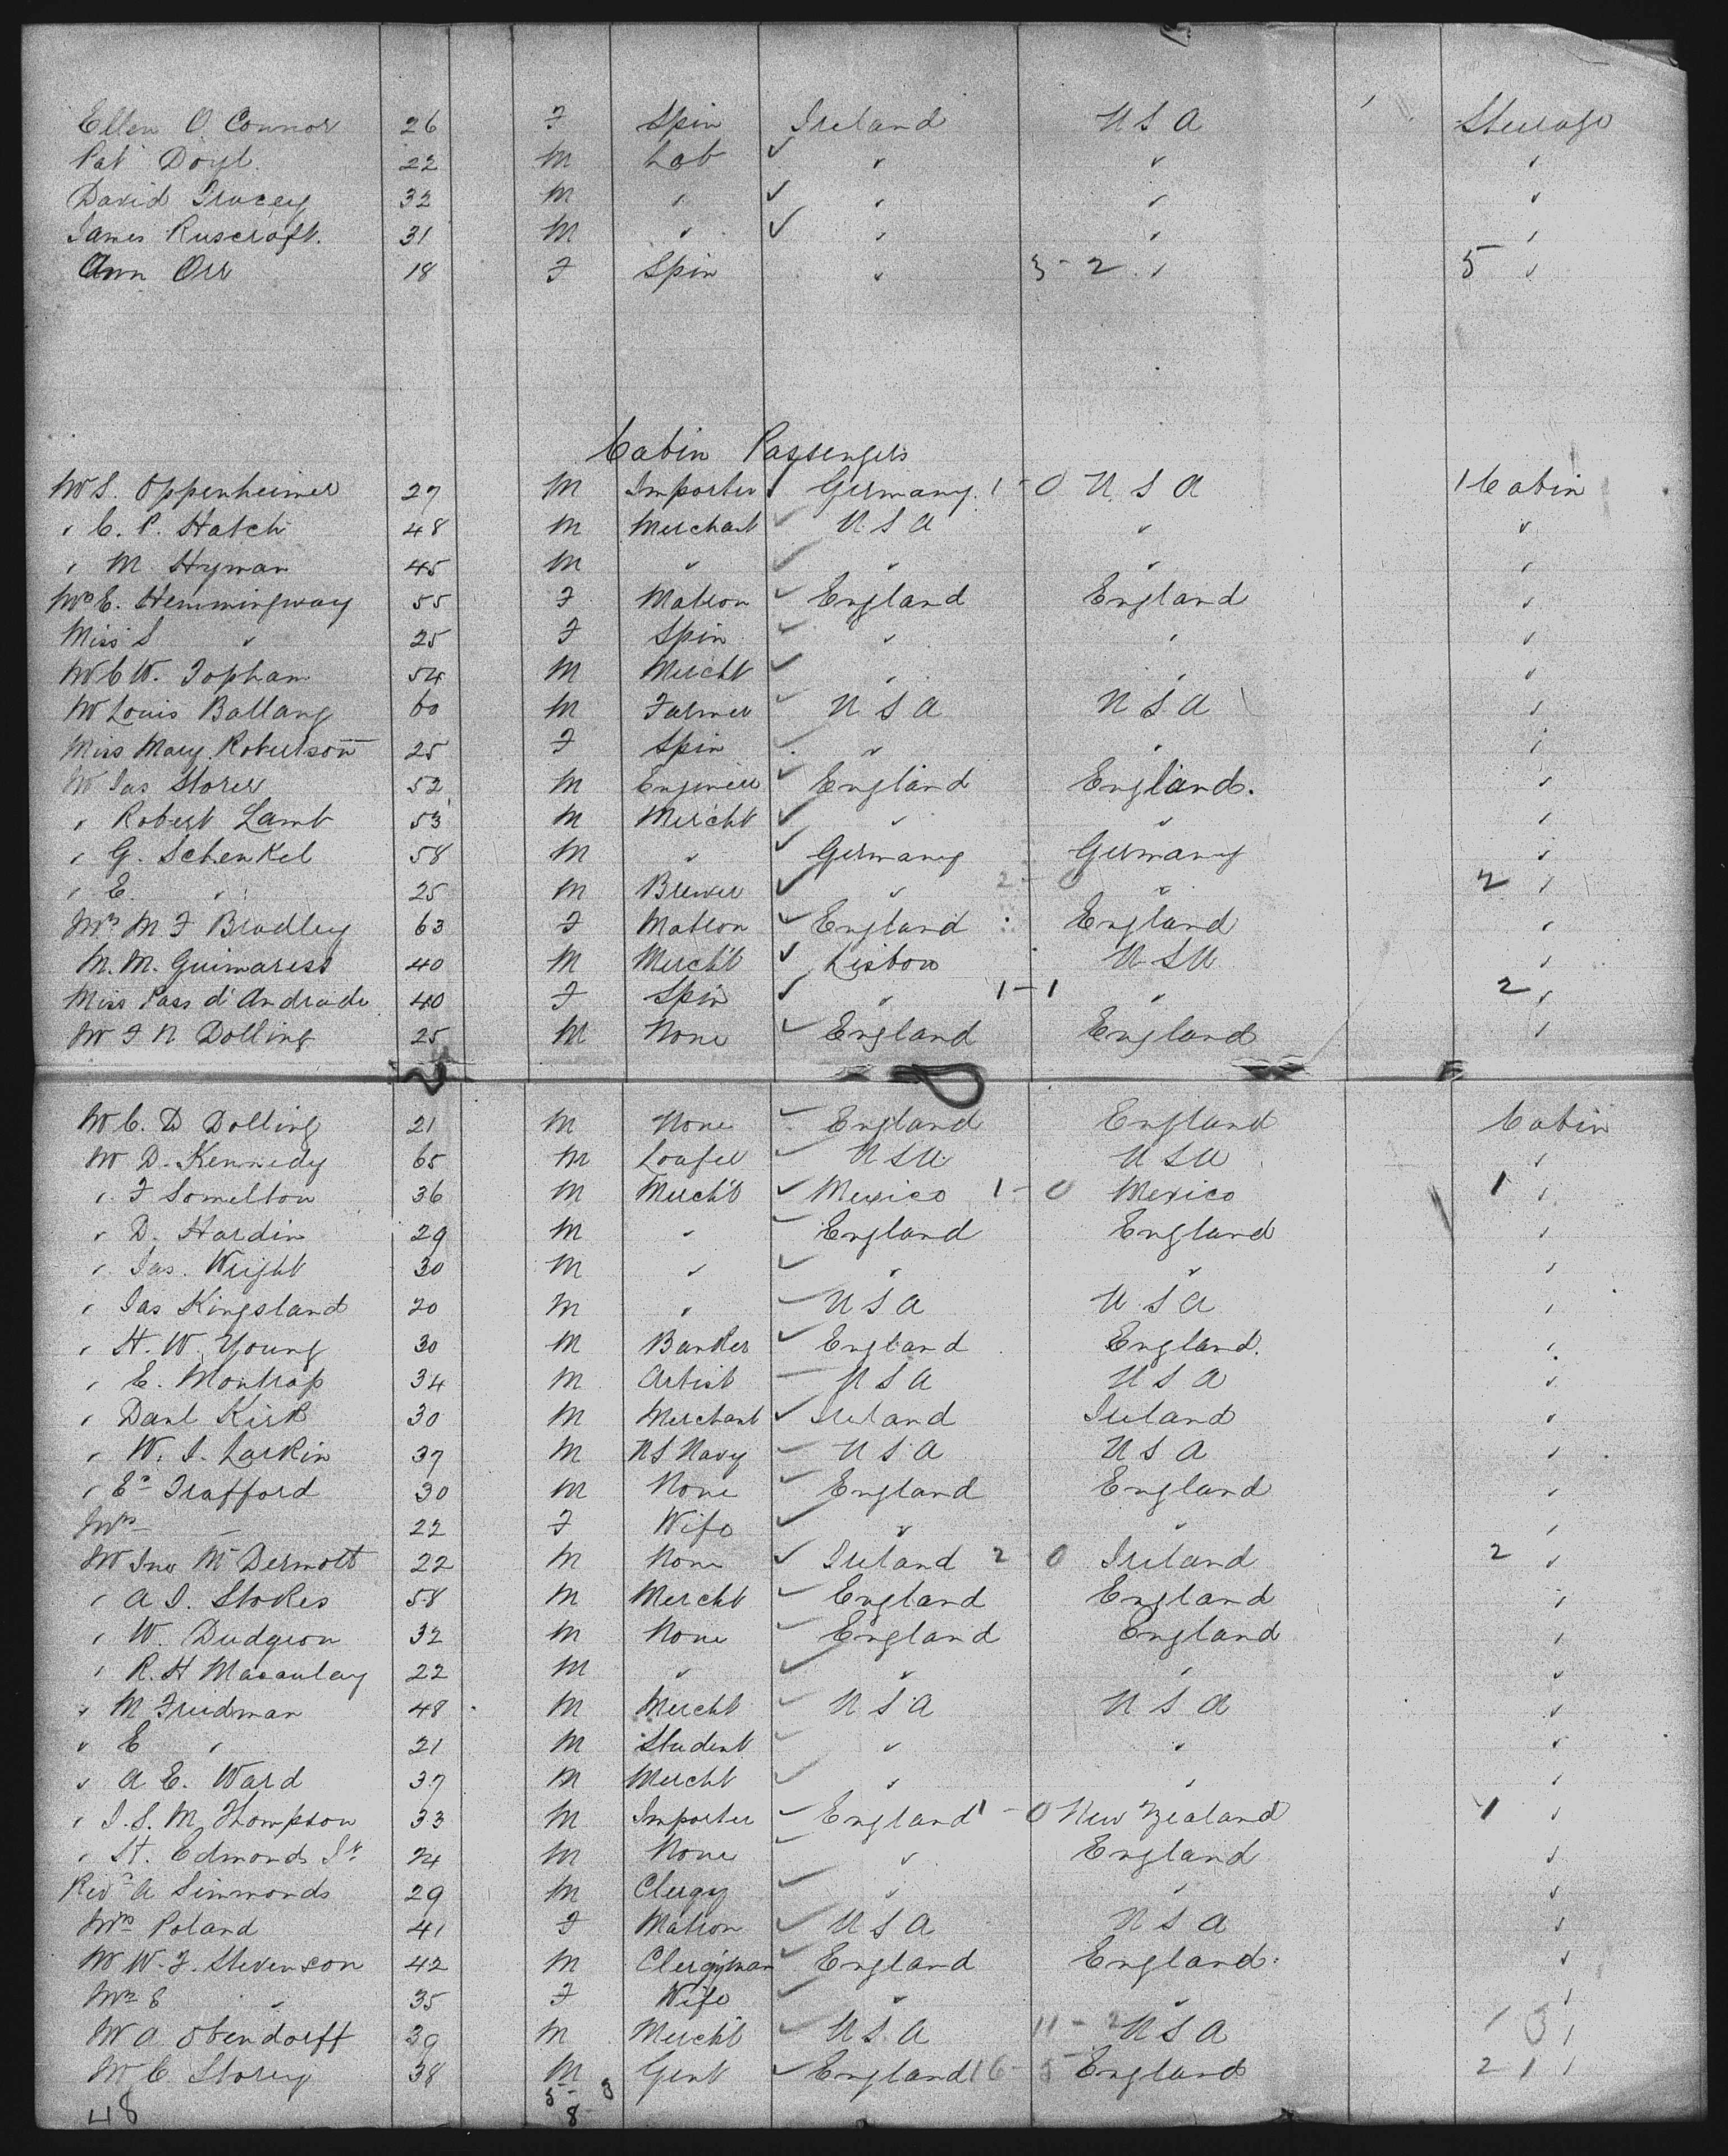 Ellen O Connor 26 F Spin Ireland U S A Steerage
Pat Doyl 22 M Lab ✓ " " "
David Tracey 32 M " ✓ " " "
James Ruscroft. 31 M " ✓ " " "
Ann Orr 18 F Spin " 3 - 2 " 5 "
Cabin Passengers
Mr S. Oppenheimer 27 M Importer ✓ Germany. 1 - 0 U S A 1 Cabin
" C. P. Hatch 48 M Merchant ✓ U S A " "
" M Hyman 45 M " ✓ " " "
Mrs E. Hemmingway 55 F Matron ✓ England England "
Miss S " 25 F Spin ✓ " " "
Mr C W. Topham 54 M Mercht ✓ " " "
Mr Louis Ballang 60 M Farmer ✓ U S A U S A "
Miss Mary Robertson 25 F Spin ✓ " " "
Mr Jas Storer 52 M Engineer ✓ England England. "
" Robert Lamb 53 M Mercht ✓ " " "
" G. Schenkel 58 M " ✓ Germany Germany "
" E. " 25 M Brewer ✓ " 2 - 0 " 2 "
Mrs M F Bradley 63 F Matron ✓ England England "
M. M. Guimaress 40 M Mercht ✓ Lisbon U S A "
Miss Pass d'Andrade 40 F Spin ✓ " 1 - 1 " 2 "
Mr F N Dolling 25 M None ✓ England England "
Mr C. D Dolling 21 M None ✓ England England Cabin
Mr D. Kennedy 65 M Loafer ✓ U S A U S A "
" F Somelton 36 M Mercht ✓ Mexico 1 - 0 Mexico 1 "
" D. Hardin 29 M " ✓ England England "
" Jas. Wright 30 M " ✓ " " "
" Jas Kingsland 20 M " ✓ U S A U S A "
" H. W. Young 30 M Banker ✓ England England. "
" E. Montrap 34 M Artist U S A U S A "
" Danl Kirk 30 M Merchant ✓ Ireland Ireland "
" W. J. Larkin 37 M U S Navy ✓ U S A U S A "
" Ed Trafford 30 M None ✓ England England "
Mrs " 22 F Wife ✓ " " "
Mr Jno McDermott 22 M None ✓ Ireland 2 - 0 Ireland 2 "
" A J. Stokes 58 M Mercht ✓ England England "
" W. Dudgeon 32 M None ✓ England England "
" R. H Macaulay 22 M " ✓ " " "
" M Freedman 48 M Mercht ✓ U S A U S A "
" E " 21 M Student ✓ " " "
" A E. Ward 37 M Mercht ✓ " " "
" J. S. M. Thompson 33 M Importer ✓ England 1 - 0 New Zealand 1 "
" St. Edmonds Jr 24 M None ✓ " England "
Revd A Simmonds 29 M Clergy ✓ " " "
Mrs Poland 41 F Matron ✓ U S A U S A "
Mr W. F. Stevenson 42 M Clergyman ✓ England England. "
Mrs E " 35 F Wife ✓ " " "
Mr A Obendorff 39 M Mercht ✓ U S A 11 - 2 U S A 13 "
Mr C Storey 38 M Gent ✓ England 16 - 5 England 21 "
48 5 - 3
8